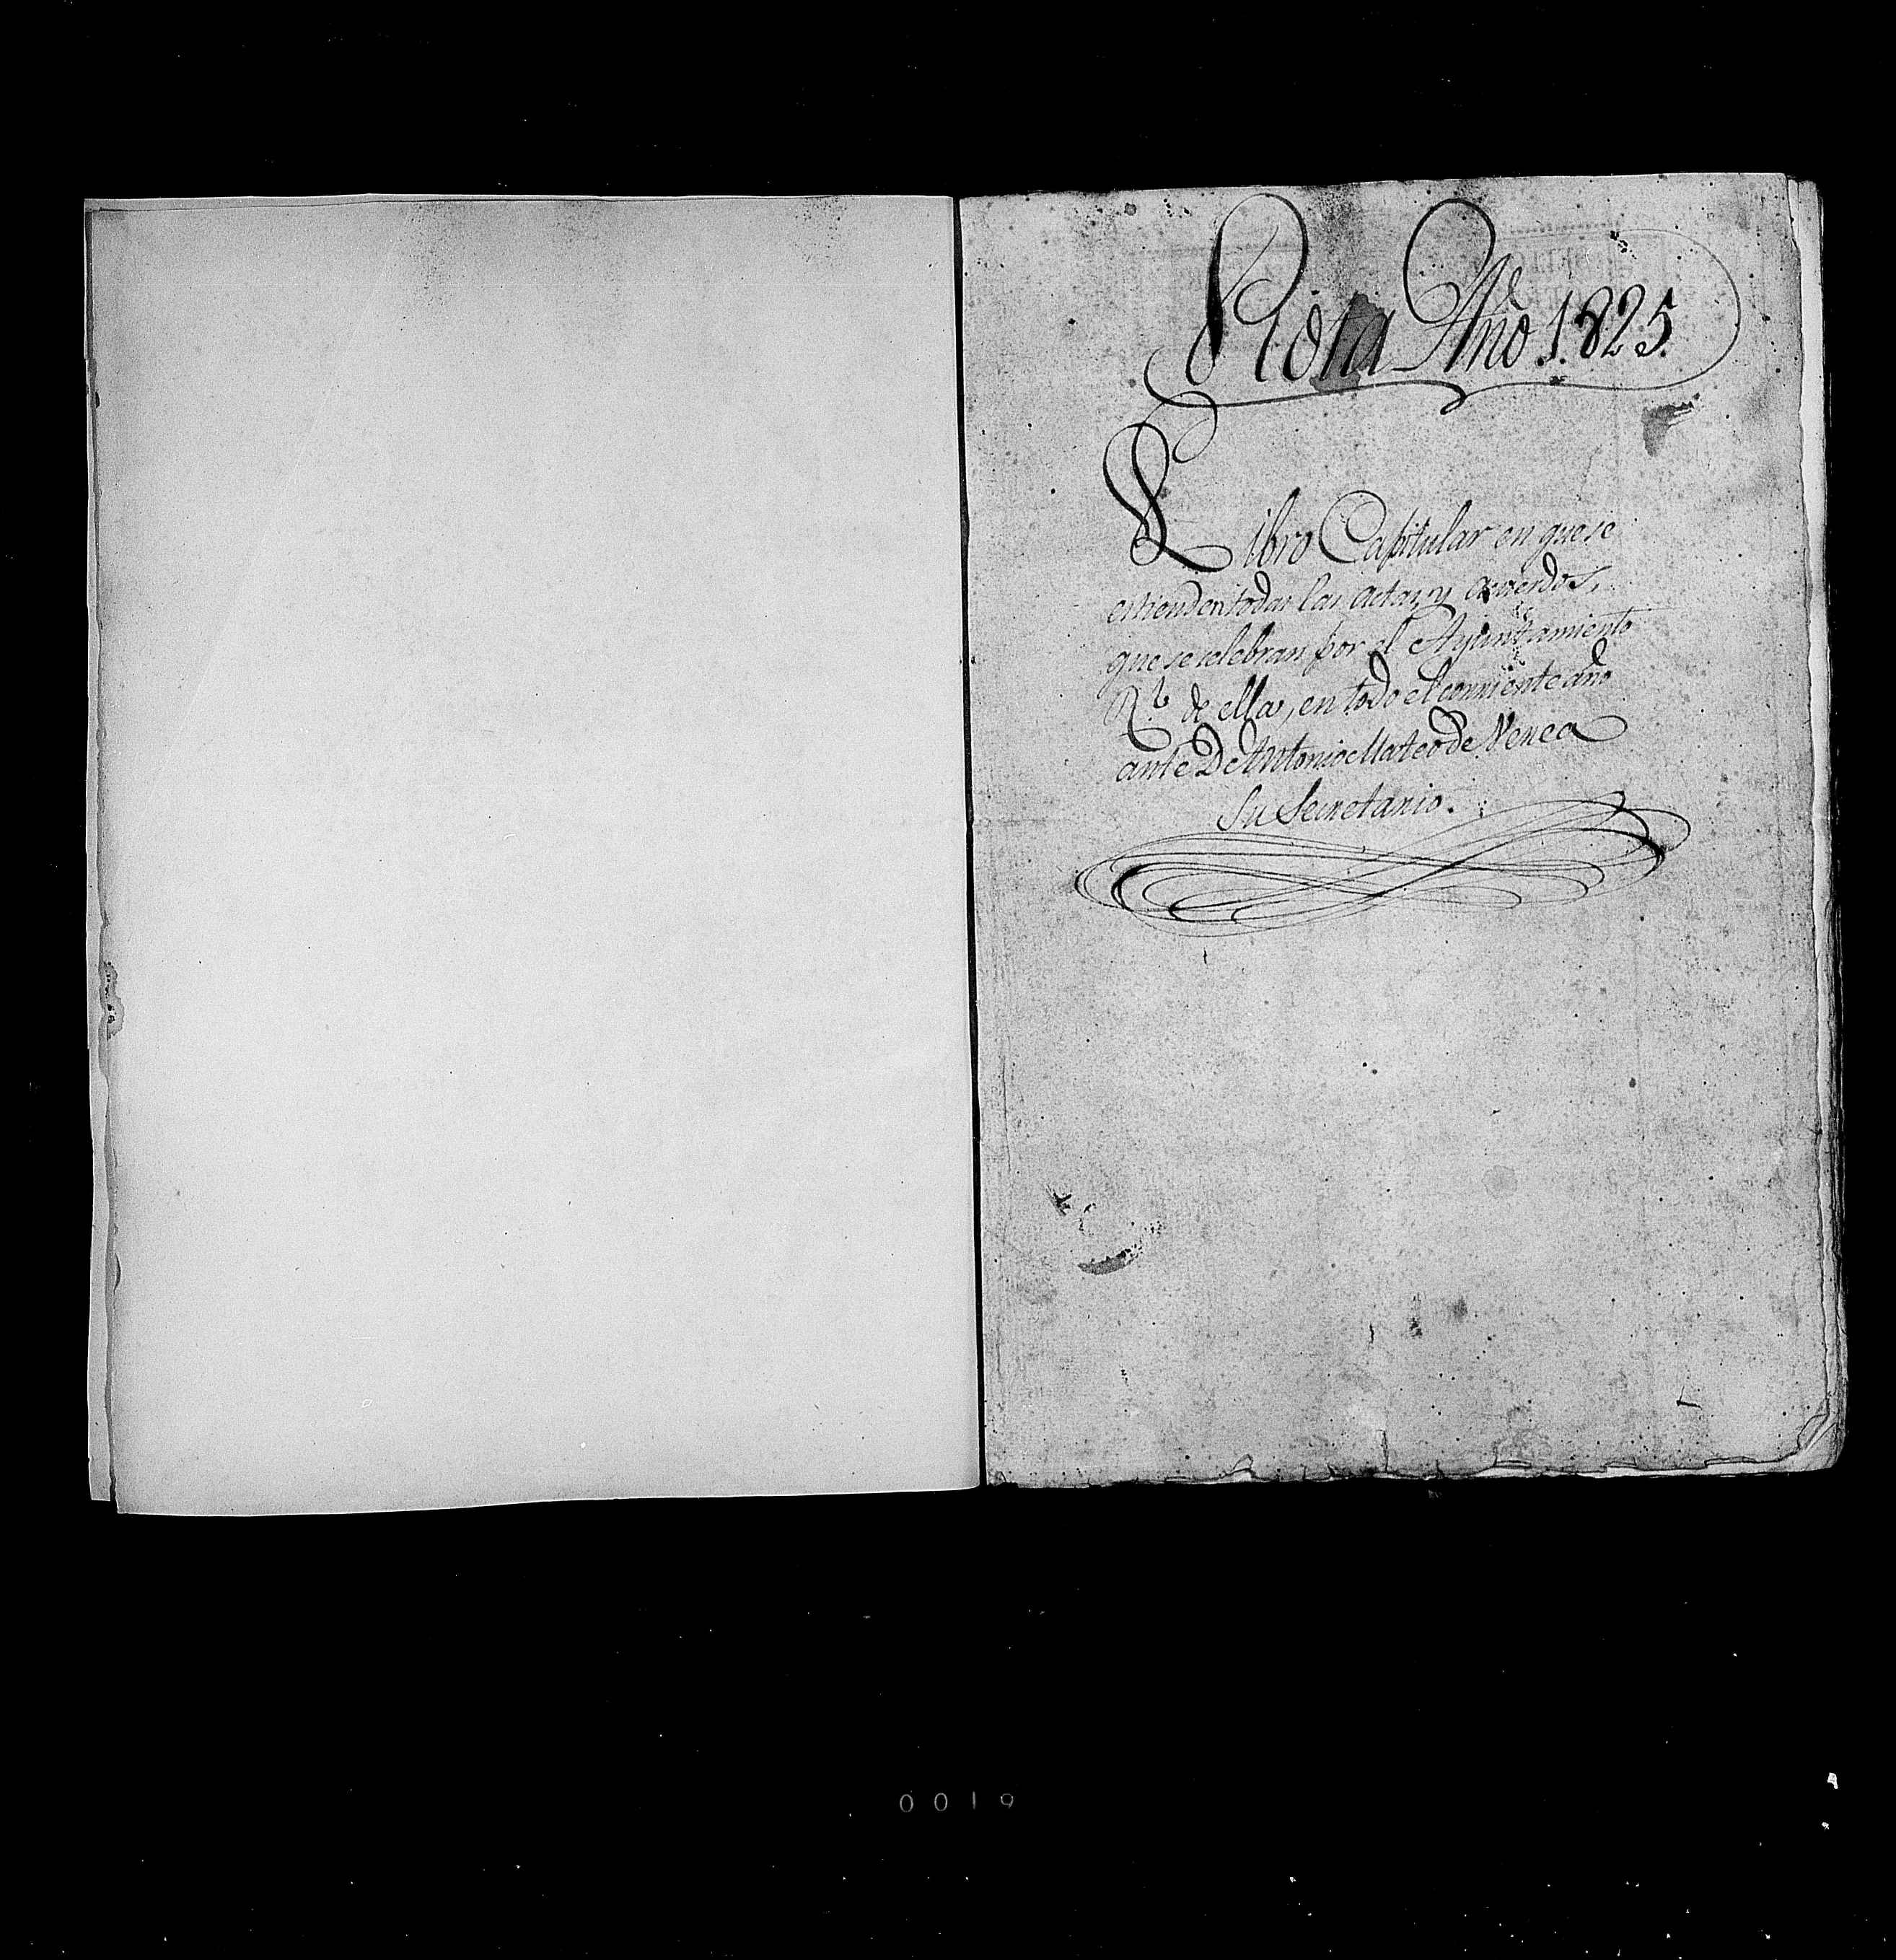 Rota Año 1825.
Libro Capitular en que se
estienden todas las actas, y acuerdos,
que se celebran por el Ayuntamiento
Rl. de ella, en todo el corriente año
ante Dn Antonio Mateo de
Su Secretario.
0019